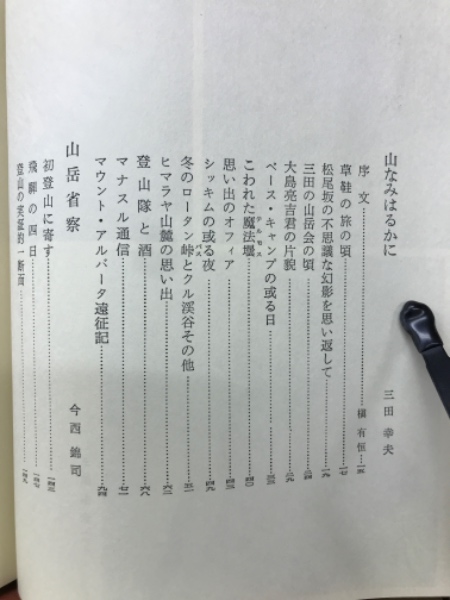 山なみはるかに 三田幸夫
序文 槇有恒 一五
草鞋の旅の頃 一七
松尾坂の不思議な幻影を思い返して 一九
三田の山岳会の頃 二四
大島亮吉君の片貌 二九
ベース・キャンプの或る日 三三
こわれた魔法壜 テルモス 四〇
思い出のオフィア 四三
シッキムの或る夜 四九
冬のロータン峠とクル渓谷その他 パス 五一
ヒマラヤ山麓の思い出 六二
登山隊と酒 六八
マナスル通信 七一
マウント・アルバータ遠征記 九四
山岳省察 今西錦司
初登山に寄す 一四三
飛騨の四日 一四七
登山の実証的一断面 一四九